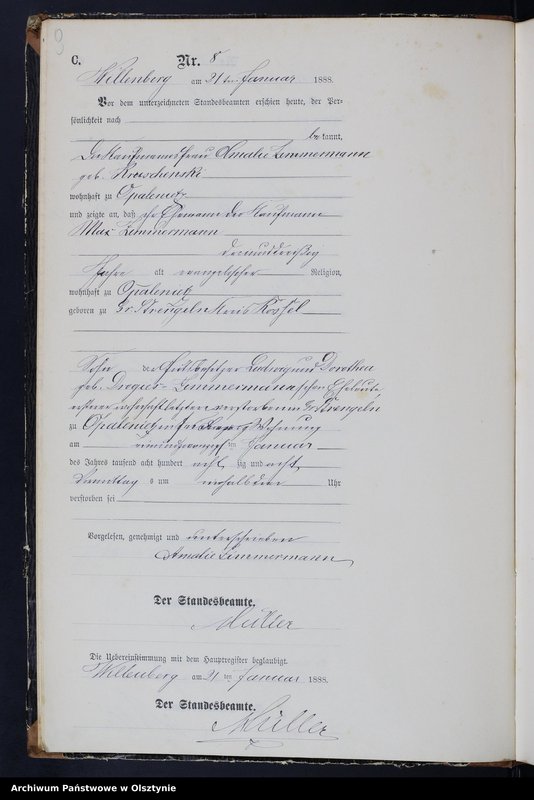 9
C.
Nr. 8
Willenberg am 21 ten Januar 1888.
Vor dem unterzeichneten Standesbeamten erschien heute, der Per-
sönlichkeit nach
bekannt,
Die Kaufmannsfrau Amalie Zimmermann
geb.
wohnhaft zu Opalenietz
und zeigte an, daß ihr Ehemann der Kaufmann
Max Zimmermann
dreiunddreißig
Jahre alt evangelischer Religion,
wohnhaft zu Opalenietz
geboren zu Gr. Kreis Rössel
Sohn der Gutsbesitzer Ludwig und Dorothea
geb. Zimmermann'schen Eheleute
verstorben in Gr.
zu Opalenietz in Wohnung
am ten Januar
des Jahres tausend acht hundert acht zig und acht
um Uhr
verstorben sei
Vorgelesen, genehmigt und unterschrieben
Amalie Zimmermann
Der Standesbeamte.
Müller
Die Uebereinstimmung mit dem Hauptregister beglaubigt.
Willenberg am 21 ten Januar 1888.
Der Standesbeamte.
Müller
Archiwum Państwowe w Olsztynie